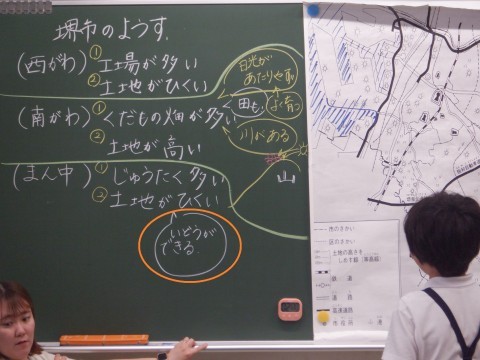 堺市のようす
(西がわ) ① 工場が多い
② 土地がひくい
日光が
あたりやすい
(南がわ) ① くだもの畑が多い
田も
よく育つ
② 土地が高い
川がある
(まん中) ① じゅうたく多い
② 土地がひくい
山
いどうが
できる
市のさかい
区のさかい
土地の高さを
しめす線(等高線)
鉄道
道路
高速道路
市役所